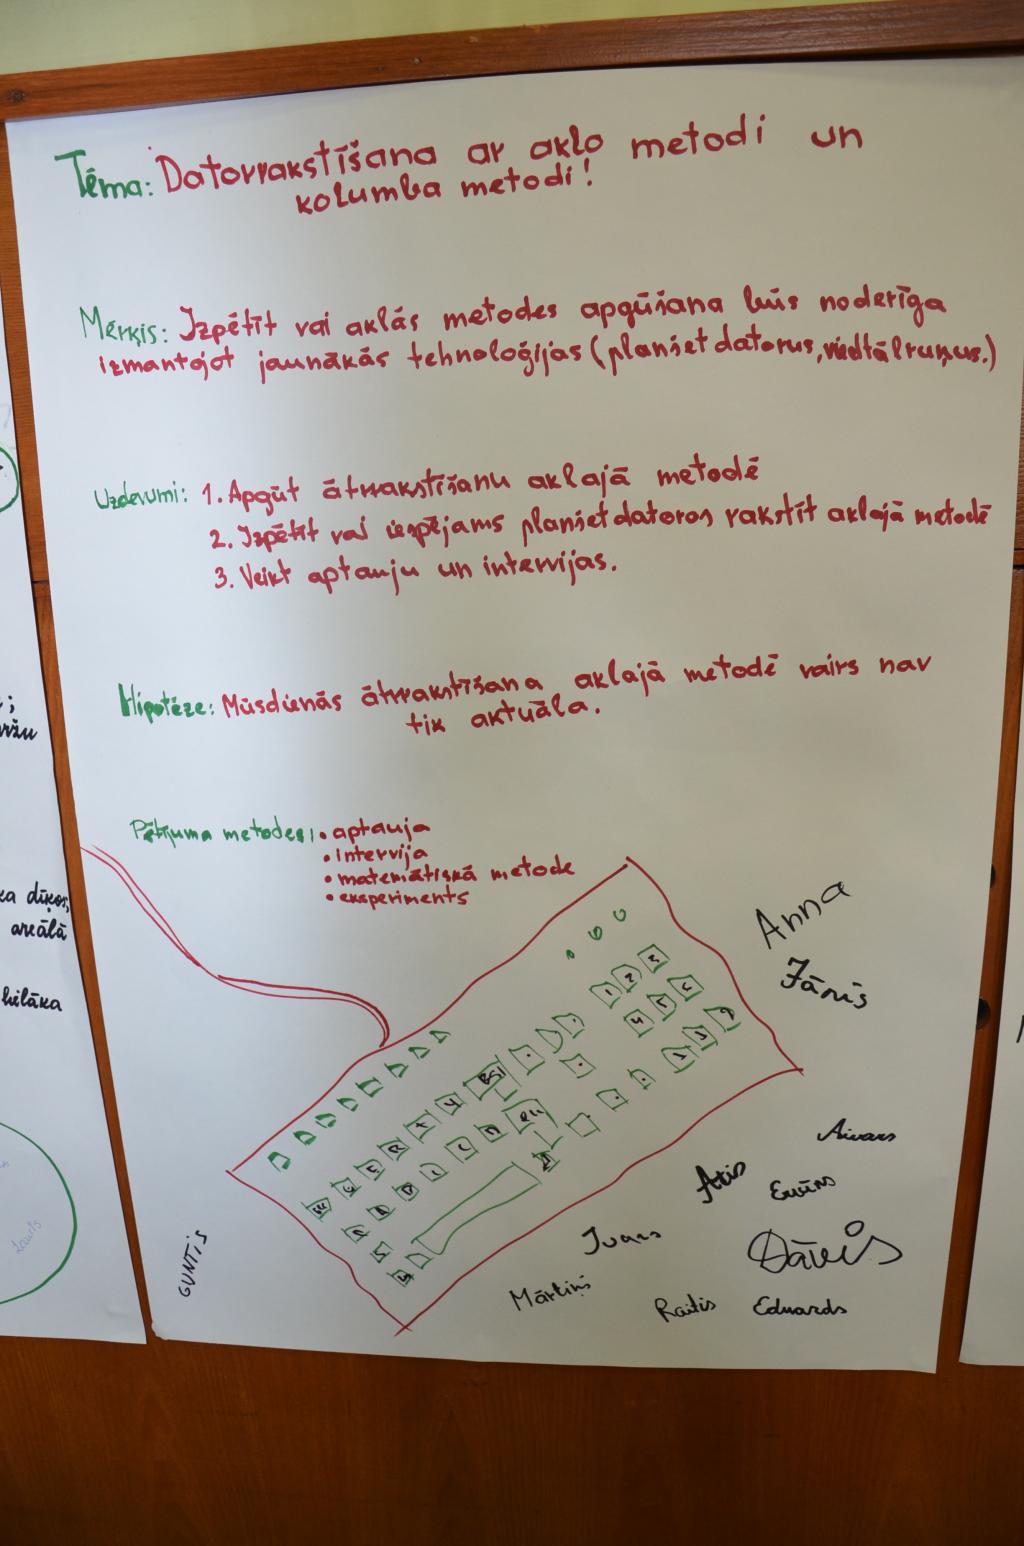 Tēma: Datorrakstīšana ar aklo metodi un
kolumba metodi!
Mērķis: Izpētīt vai aklās metodes apgūšana būs noderīga
izmantojot jaunākās tehnoloģijas (planšetdatorus, viedtālruņus.)
Uzdevumi: 1. Apgūt ātrrakstīšanu aklajā metodē
2. Izpētīt vai iespējams planšetdatoros rakstīt aklajā metodē
3. Veikt aptauju un intervijas.
Hipotēze: Mūsdienās ātrrakstīšana aklajā metodē vairs nav
tik aktuāla.
Pētījuma metodes: • aptauja
• intervija
• matemātiskā metode
• eksperiments
Anna
Jānis
Aivars
Atis
Ervīns
Ivars
Dāvis
Mārtiņš
Raitis
Edvards
GUNTIS
ka dīķos,
areālā